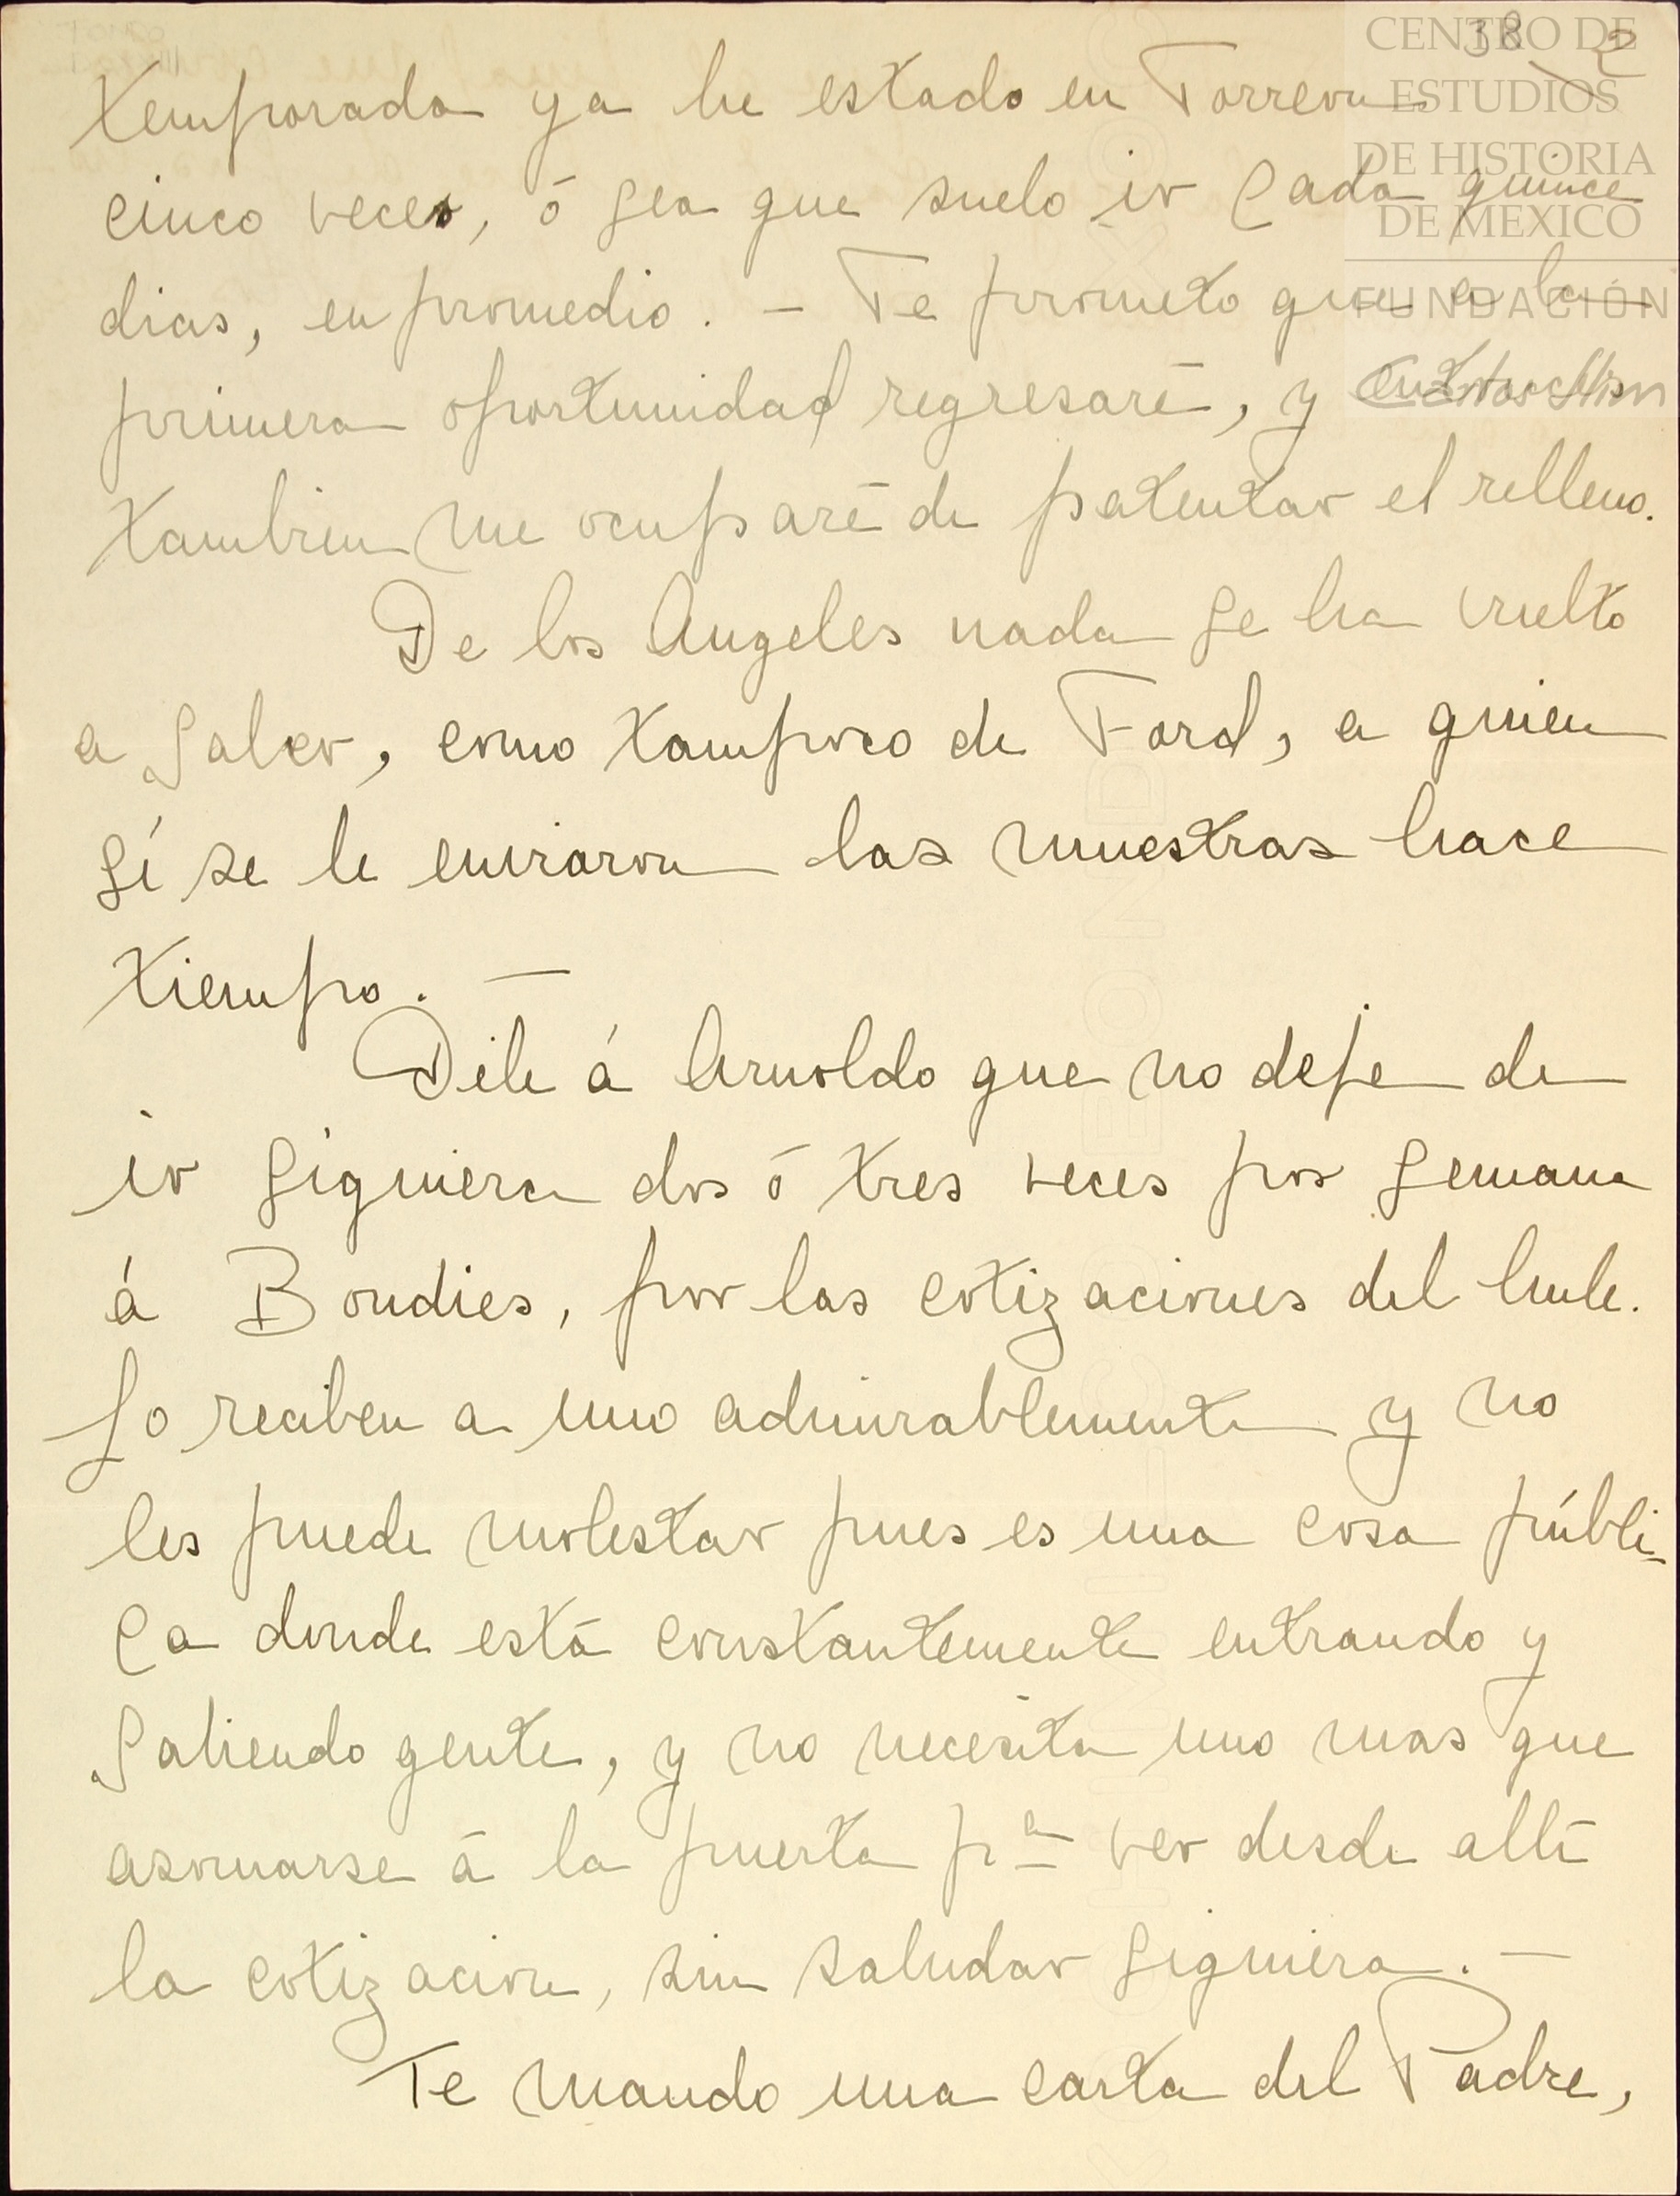 38 2
CENTRO DE
ESTUDIOS
DE HISTORIA
DE MEXICO
FUNDACIÓN
temporada ya he estado en Torreon
cinco veces, ó sea que suelo ir cada quince
dias, en promedio. — Te prometo que a la
primera oportunidad regresaré, y entonces
tambien me ocuparé de patentar el relleno.
De los Angeles nada se ha vuelto
a saber, como tampoco de Ford, a quien
sí se le enviaron las muestras hace
tiempo. —
Dile á Arnoldo que no deje de
ir siquiera dos ó tres veces por semana
á Bondies, por las cotizaciones del hule.
Lo reciben a uno admirablemente y no
les puede molestar pues es una cosa públi-
ca donde está constantemente entrando y
saliendo gente, y no necesita uno mas que
asomarse á la puerta pª ver desde allí
la cotizacion, sin saludar siquiera. —
Te mando una carta del Padre,